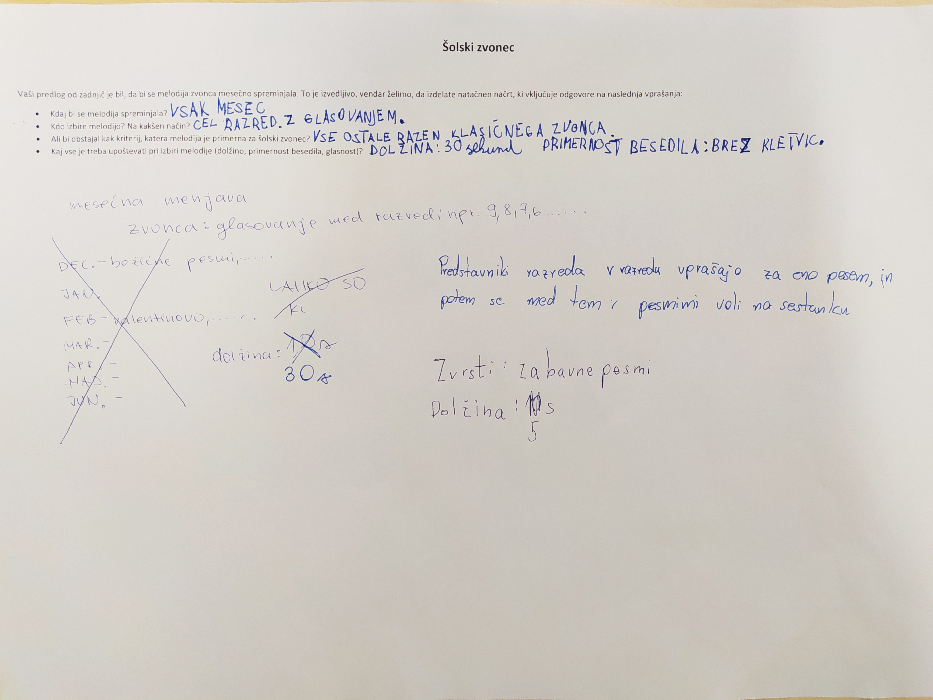 Šolski zvonec
Vaši predlog od zadnjič je bil, da bi se melodija zvonca mesečno spreminjala. To je izvedljivo, vendar želimo, da izdelate natačnen načrt, ki vključuje odgovore na naslednja vprašanja:
• Kdaj bi se melodija spreminjala? VSAK MESEC
• Kdo izbire melodijo? Na kakšen način? CEL RAZRED. Z GLASOVANJEM.
• Ali bi obstajal kak kriterij, katera melodija je primerna za šolski zvonec? VSE OSTALE RAZEN KLASIČNEGA ZVONCA.
• Kaj vse je treba upoštevati pri izbiri melodije (dolžino, primernost besedila, glasnost)? DOLŽINA: 30 sekund PRIMERNOST BESEDILA: BREZ KLETVIC.
mesečna menjava
zvonca: glasovanje med razredi npr. 9,8,7,6......
DEC. - božične pesmi,.....
JAN.
FEB - valentinovo,......
MAR. -
APR. -
MAJ. -
JUN. -
LAHKO SO
ki
dolžina: 10s
30s
Predstavniki razreda v razredu vprašajo za eno pesem, in
potem se med temi pesmimi voli na sestanku
Zvrsti: zabavne pesmi
Dolžina: s
5